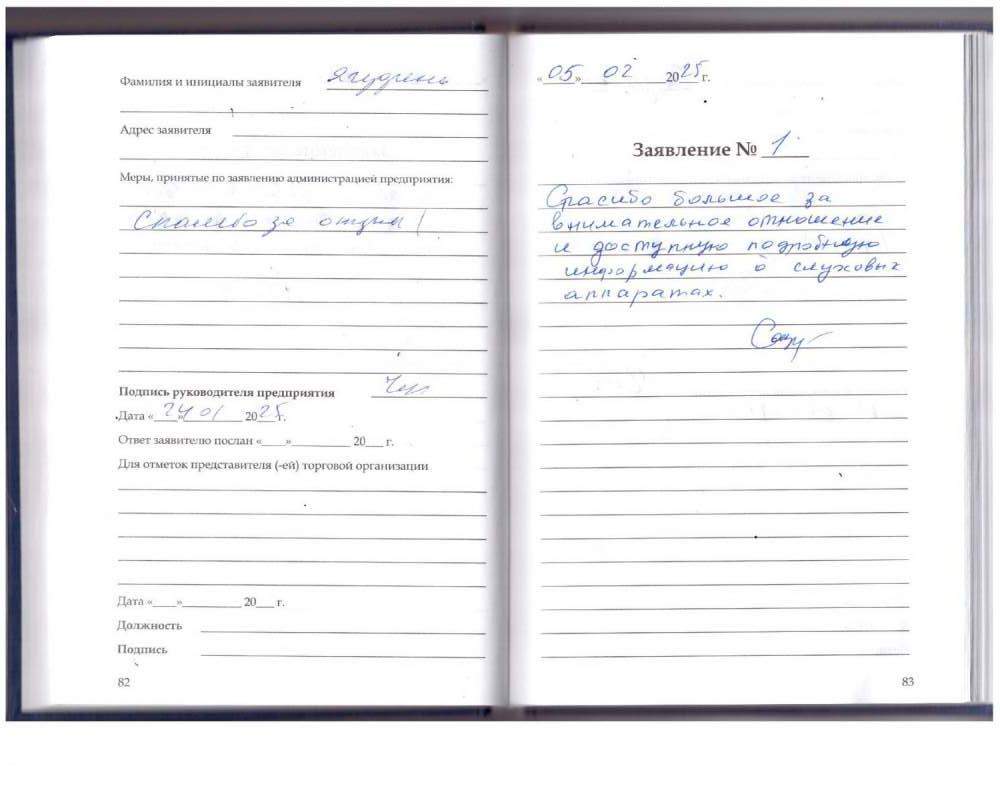 Фамилия и инициалы заявителя
Адрес заявителя
Меры, принятые по заявлению администрацией предприятия:
Спасибо за отзыв!
Подпись руководителя предприятия
Дата «24» 01 2025 г.
Ответ заявителю послан «____»__________ 20___ г.
Для отметок представителя (-ей) торговой организации
Дата «____»__________ 20___ г.
Должность
Подпись
82
«05» 02 2025 г.
Заявление № 1
Спасибо большое за
внимательное отношение
и доступную подробную
информацию о слуховых
аппаратах.
83